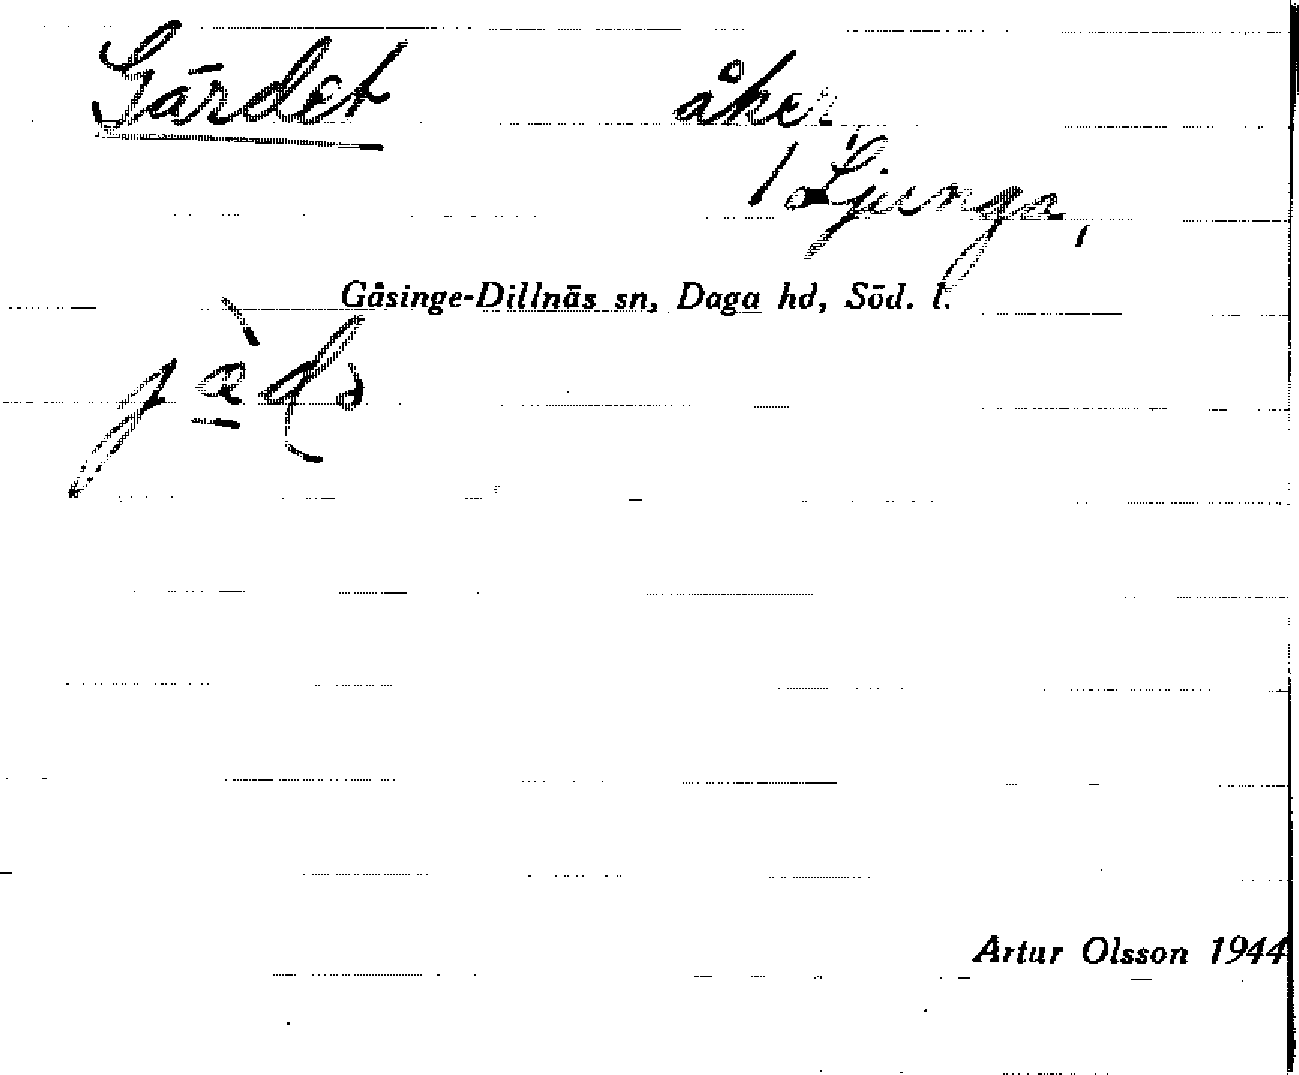 Gärdet åker,
1 Ljunga,
Gåsinge-Dillnäs sn, Daga hd, Söd. l.
Artur Olsson 1944